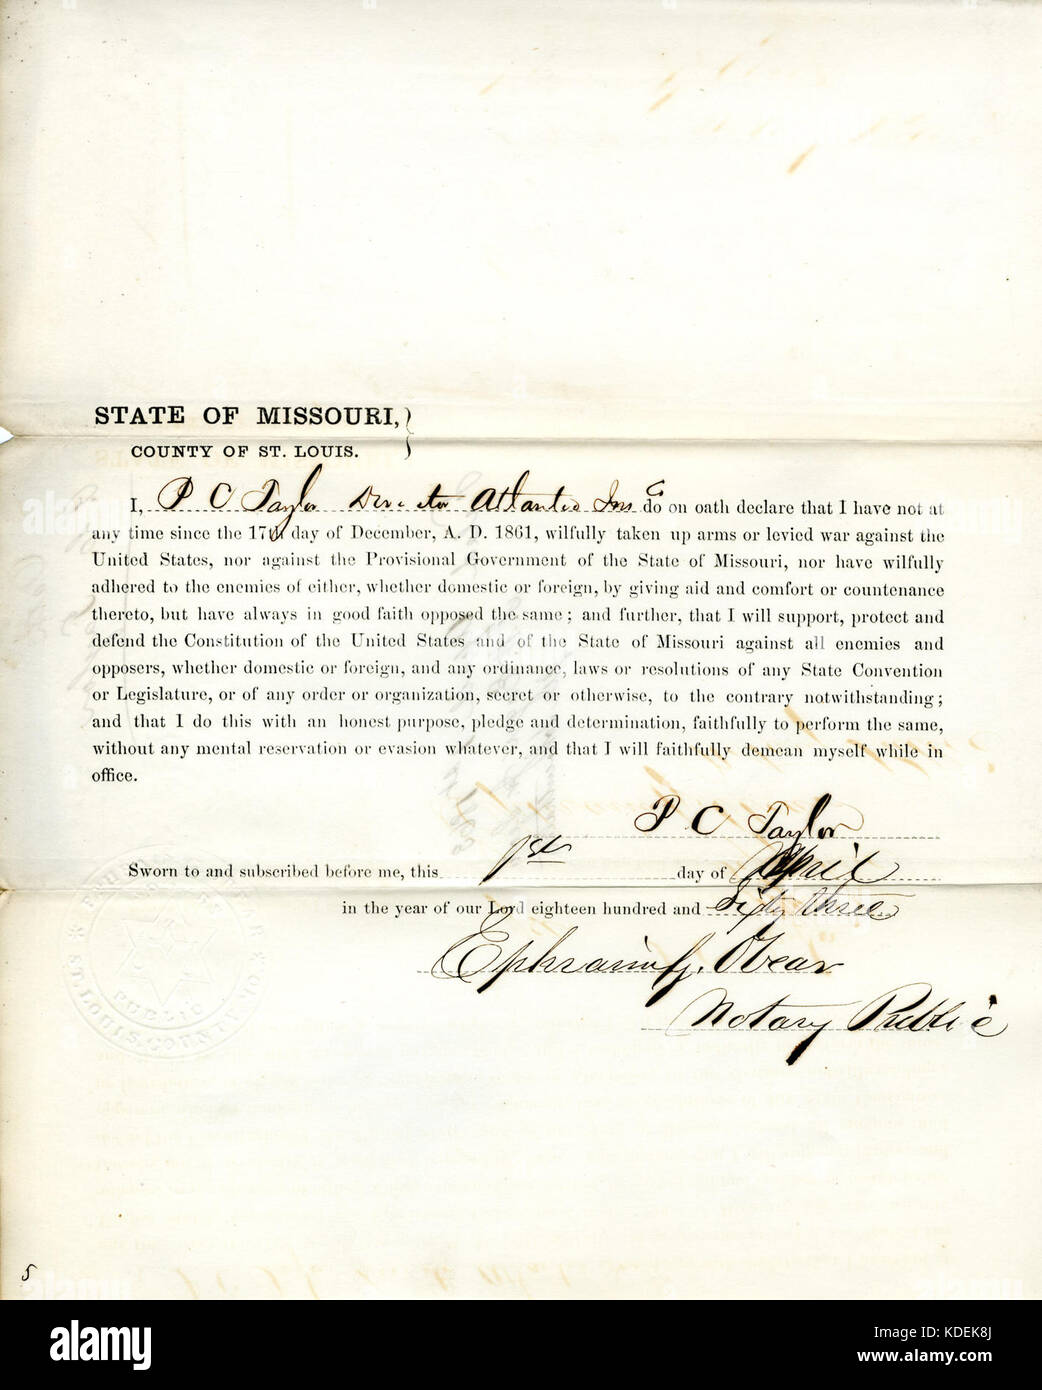 STATE OF MISSOURI,
COUNTY OF ST. LOUIS.
I, P C Taylor Director Atlantic Insce do on oath declare that I have not at
any time since the 17th day of December, A. D. 1861, wilfully taken up arms or levied war against the
United States, nor against the Provisional Government of the State of Missouri, nor have wilfully
adhered to the enemies of either, whether domestic or foreign, by giving aid and comfort or countenance
thereto, but have always in good faith opposed the same; and further, that I will support, protect and
defend the Constitution of the United States and of the State of Missouri against all enemies and
opposers, whether domestic or foreign, and any ordinance, laws or resolutions of any State Convention
or Legislature, or of any order or organization, secret or otherwise, to the contrary notwithstanding;
and that I do this with an honest purpose, pledge and determination, faithfully to perform the same,
without any mental reservation or evasion whatever, and that I will faithfully demean myself while in
office.
P C Taylor
Sworn to and subscribed before me, this 1st day of April
in the year of our Lord eighteen hundred and Sixty three
Ephraim J. Obear
Notary Public
PUBLIC
ST. LOUIS, CO. MO.
5
alamy
Image ID: KDEK8J
www.alamy.com